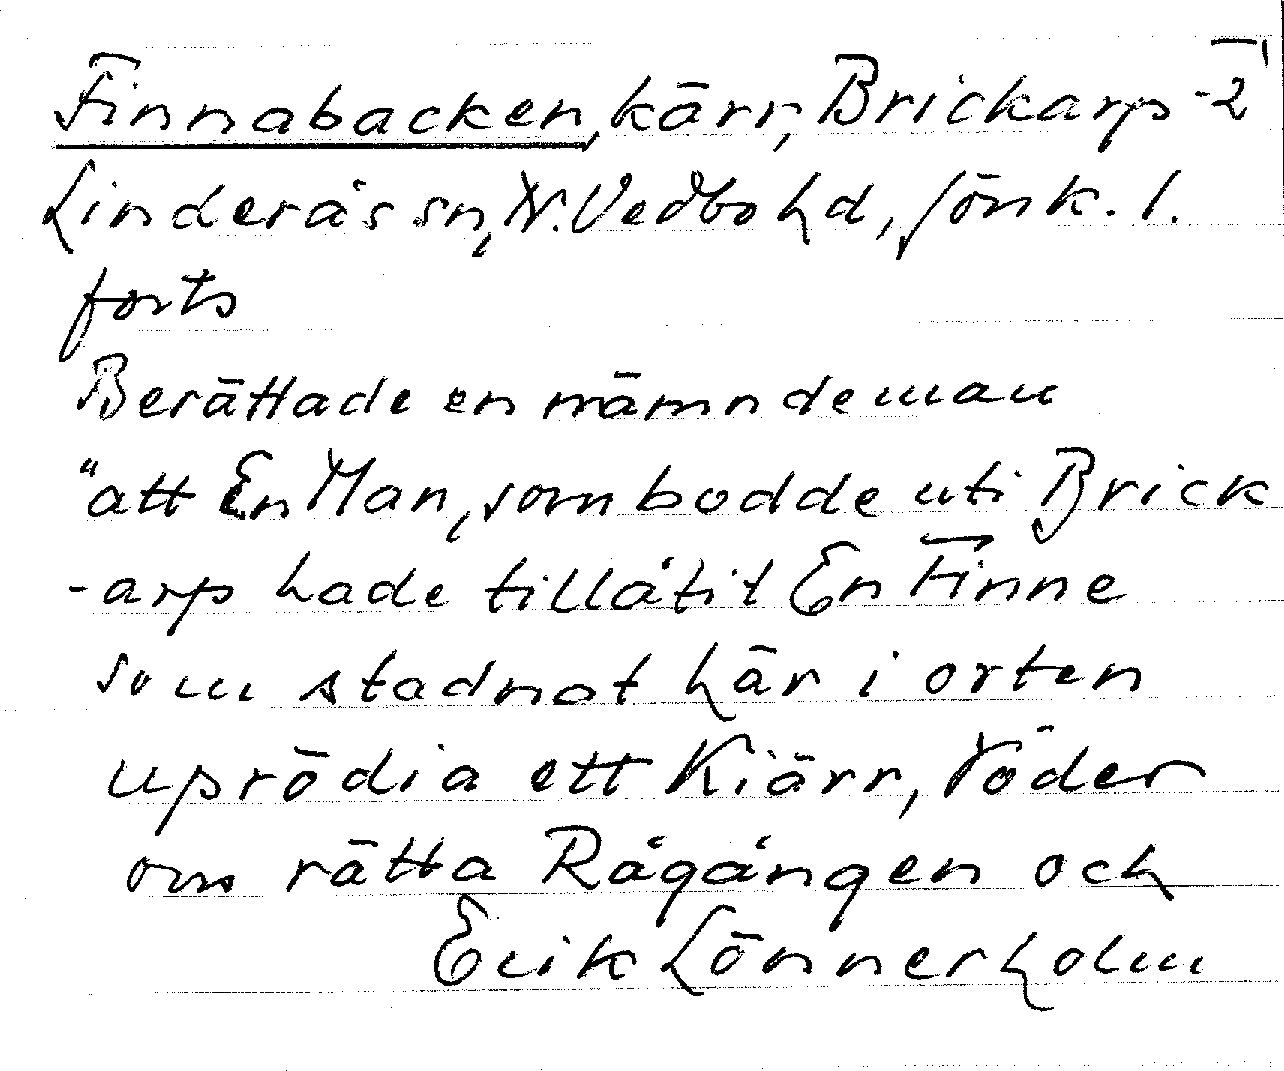 Finnabacken, kärr, Brickarp -2
Linderås sn, N. Vedbo hd, Jönk. l.
forts
Berättade en nämndeman
"att En Man, som bodde uti Brick
-arp hade tillåtit En Finne
som stadnat här i orten
uprödia ett Kiärr, Söder
om rätta Rågången och
Erik Lönnerholm